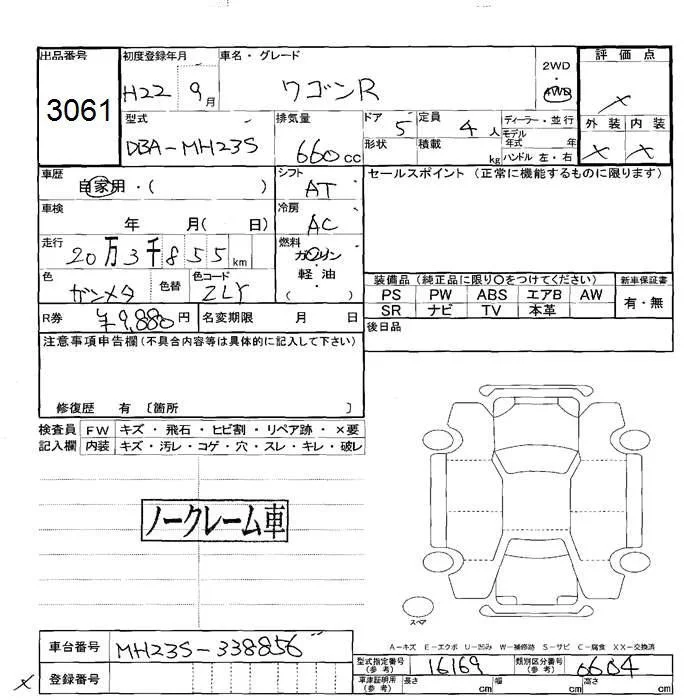 出品番号 初度登録年月 車名・グレード 評価点
3061 H22 9月 ワゴンR 2WD・4WD ×
型式 排気量 ドア 定員 ディーラー・並行 外装 内装
DBA-MH23S 660cc 5 4人 モデル年式 年 × ×
形状 積載 kg ハンドル 左・右
車歴 シフト セールスポイント (正常に機能するものに限ります)
自家用・( ) AT
車検 冷房
年 月( 日) AC
走行 燃料
20万3千855km ガソリン・軽油( )
色 色替 色コード
ガンメタ ZLY
装備品(純正品に限り○をつけてください) 新車保証書
PS PW ABS エアB AW 有・無
SR ナビ TV 本革
R券 ¥9,880円 名変期限 月 日 後日品
注意事項申告欄(不具合内容等は具体的に記入して下さい)
修復歴 有 〔箇所 〕
検査員 FW キズ・飛石・ヒビ割・リペア跡・×要
記入欄 内装 キズ・汚レ・コゲ・穴・スレ・キレ・破レ
ノークレーム車
スペア
A-キズ E-エクボ U-凹み W-補修跡 S-サビ C-腐食 XX-交換済
車台番号 MH23S-338856
型式指定番号(参考) 16169 類別区分番号(参考) 6604
× 登録番号
車庫証明用(参考) 長さ cm 幅 cm 高さ cm